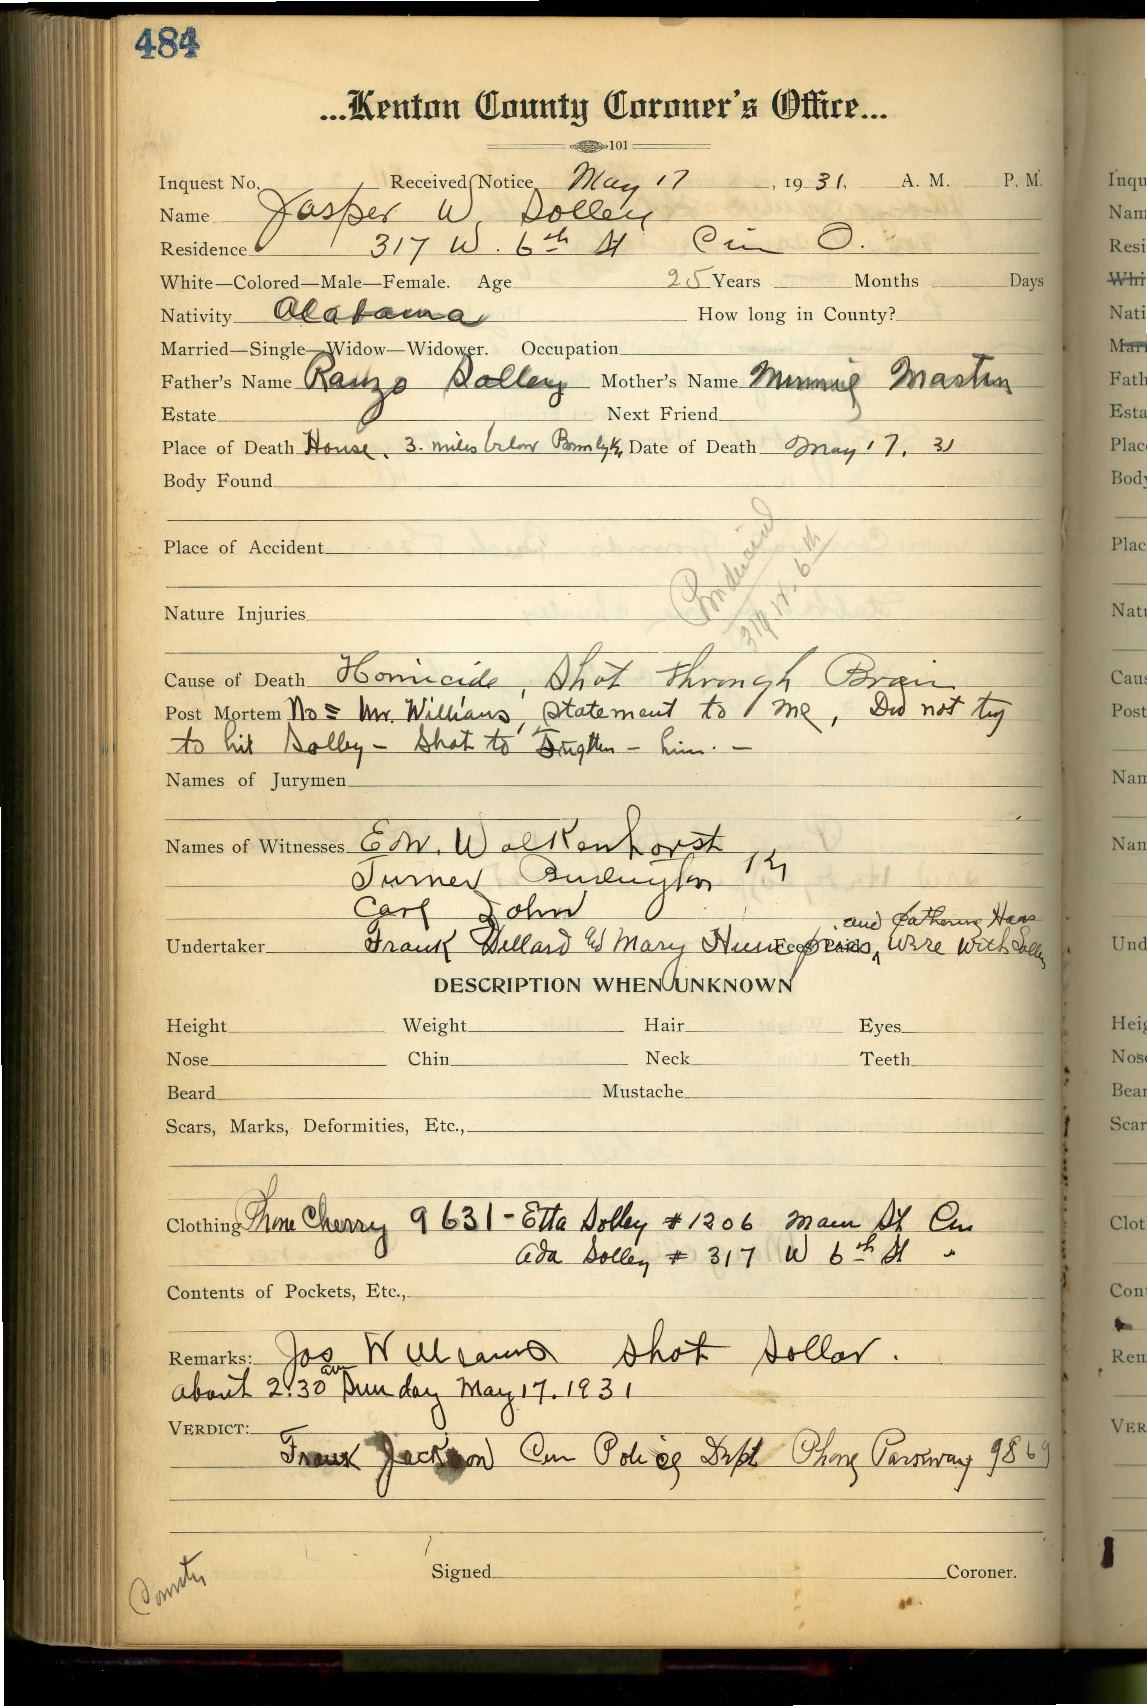 484
...Kenton County Coroner's Office...
101
Inquest No. Received Notice May 17, 1931. A. M. P. M.
Name Jasper W. Solley
Residence 317 W. 6th St Cin O.
White—Colored—Male—Female. Age 25 Years Months Days
Nativity Alabama How long in County?
Married—Single—Widow—Widower. Occupation
Father's Name Ranzo Solley Mother's Name Minnie Mastin
Estate Next Friend
Place of Death House, 3. miles below Date of Death May 17. 31
Body Found
Place of Accident
317 W. 6th
Nature Injuries
Cause of Death Homicide, Shot through Brain
Post Mortem No = Mr. Williams, statement to me, Did not try
to hit Solley - Shot to Frighten - him. -
Names of Jurymen
Names of Witnesses Edw. Wolkenhorst
Turner Burlington Ky
Carl John
and Catherine Haas
Undertaker Frank Hellard and Mary were with Solley
DESCRIPTION WHEN UNKNOWN
Height Weight Hair Eyes
Nose Chin Neck Teeth
Beard Mustache
Scars, Marks, Deformities, Etc.,
Clothing Phone Cherry 9631 - Etta Solley # 1206 Main St Cin
Ada Solley # 317 W 6th St "
Contents of Pockets, Etc.,
Remarks: Jos Williams Shot Sollar.
about 2:30 am Sunday May 17. 1931
VERDICT:
Frank Jackson Cin Police Dept Phone Parkway 9869
Signed Coroner.
County
Inqu
Nam
Resi
Whi
Nati
Mar
Fath
Esta
Plac
Body
Plac
Natu
Caus
Post
Nam
Nam
Und
Heig
Nose
Bear
Scar
Clot
Cont
Rem
VER